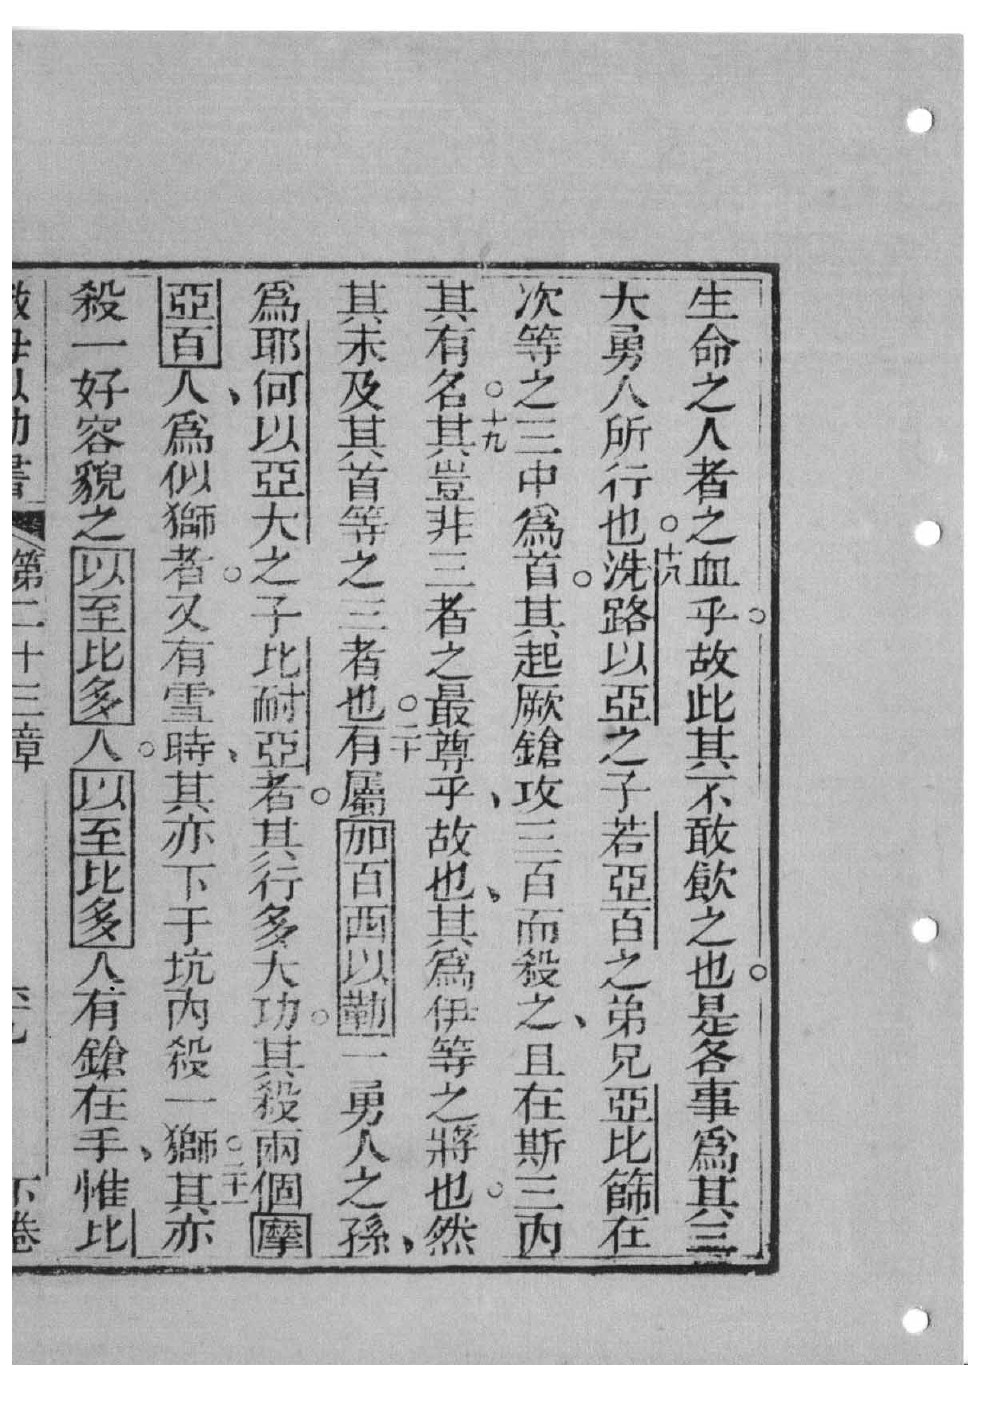 生命之人者之血乎。故此其不敢飲之也。是各事爲其三
大勇人所行也。十八洗路以亞之子若亞百之弟兄亞比篩在
次等之三中爲首。其起厥鎗攻三百而殺之、且在斯三內
其有名。十九其豈非三者之最尊乎、故也、其爲伊等之將也。然
其未及其首等之三者也。二十有屬加百西以勒一勇人之孫、
爲耶何以亞大之子比耐亞者。其行多大功。其殺兩個摩
亞百人、爲似獅者。又有雪時、其亦下于坑內殺一獅。二十一其亦
殺一好容貌之以至比多人。以至比多人有鎗在手、惟比
第二十三章
下卷